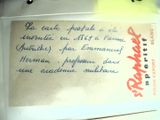 La carte postale a été
inventée en 1869 à Vienne
(Autriche) par Emmanuel
Herman, professeur dans
une académie militaire
St Raphaël
apéritif